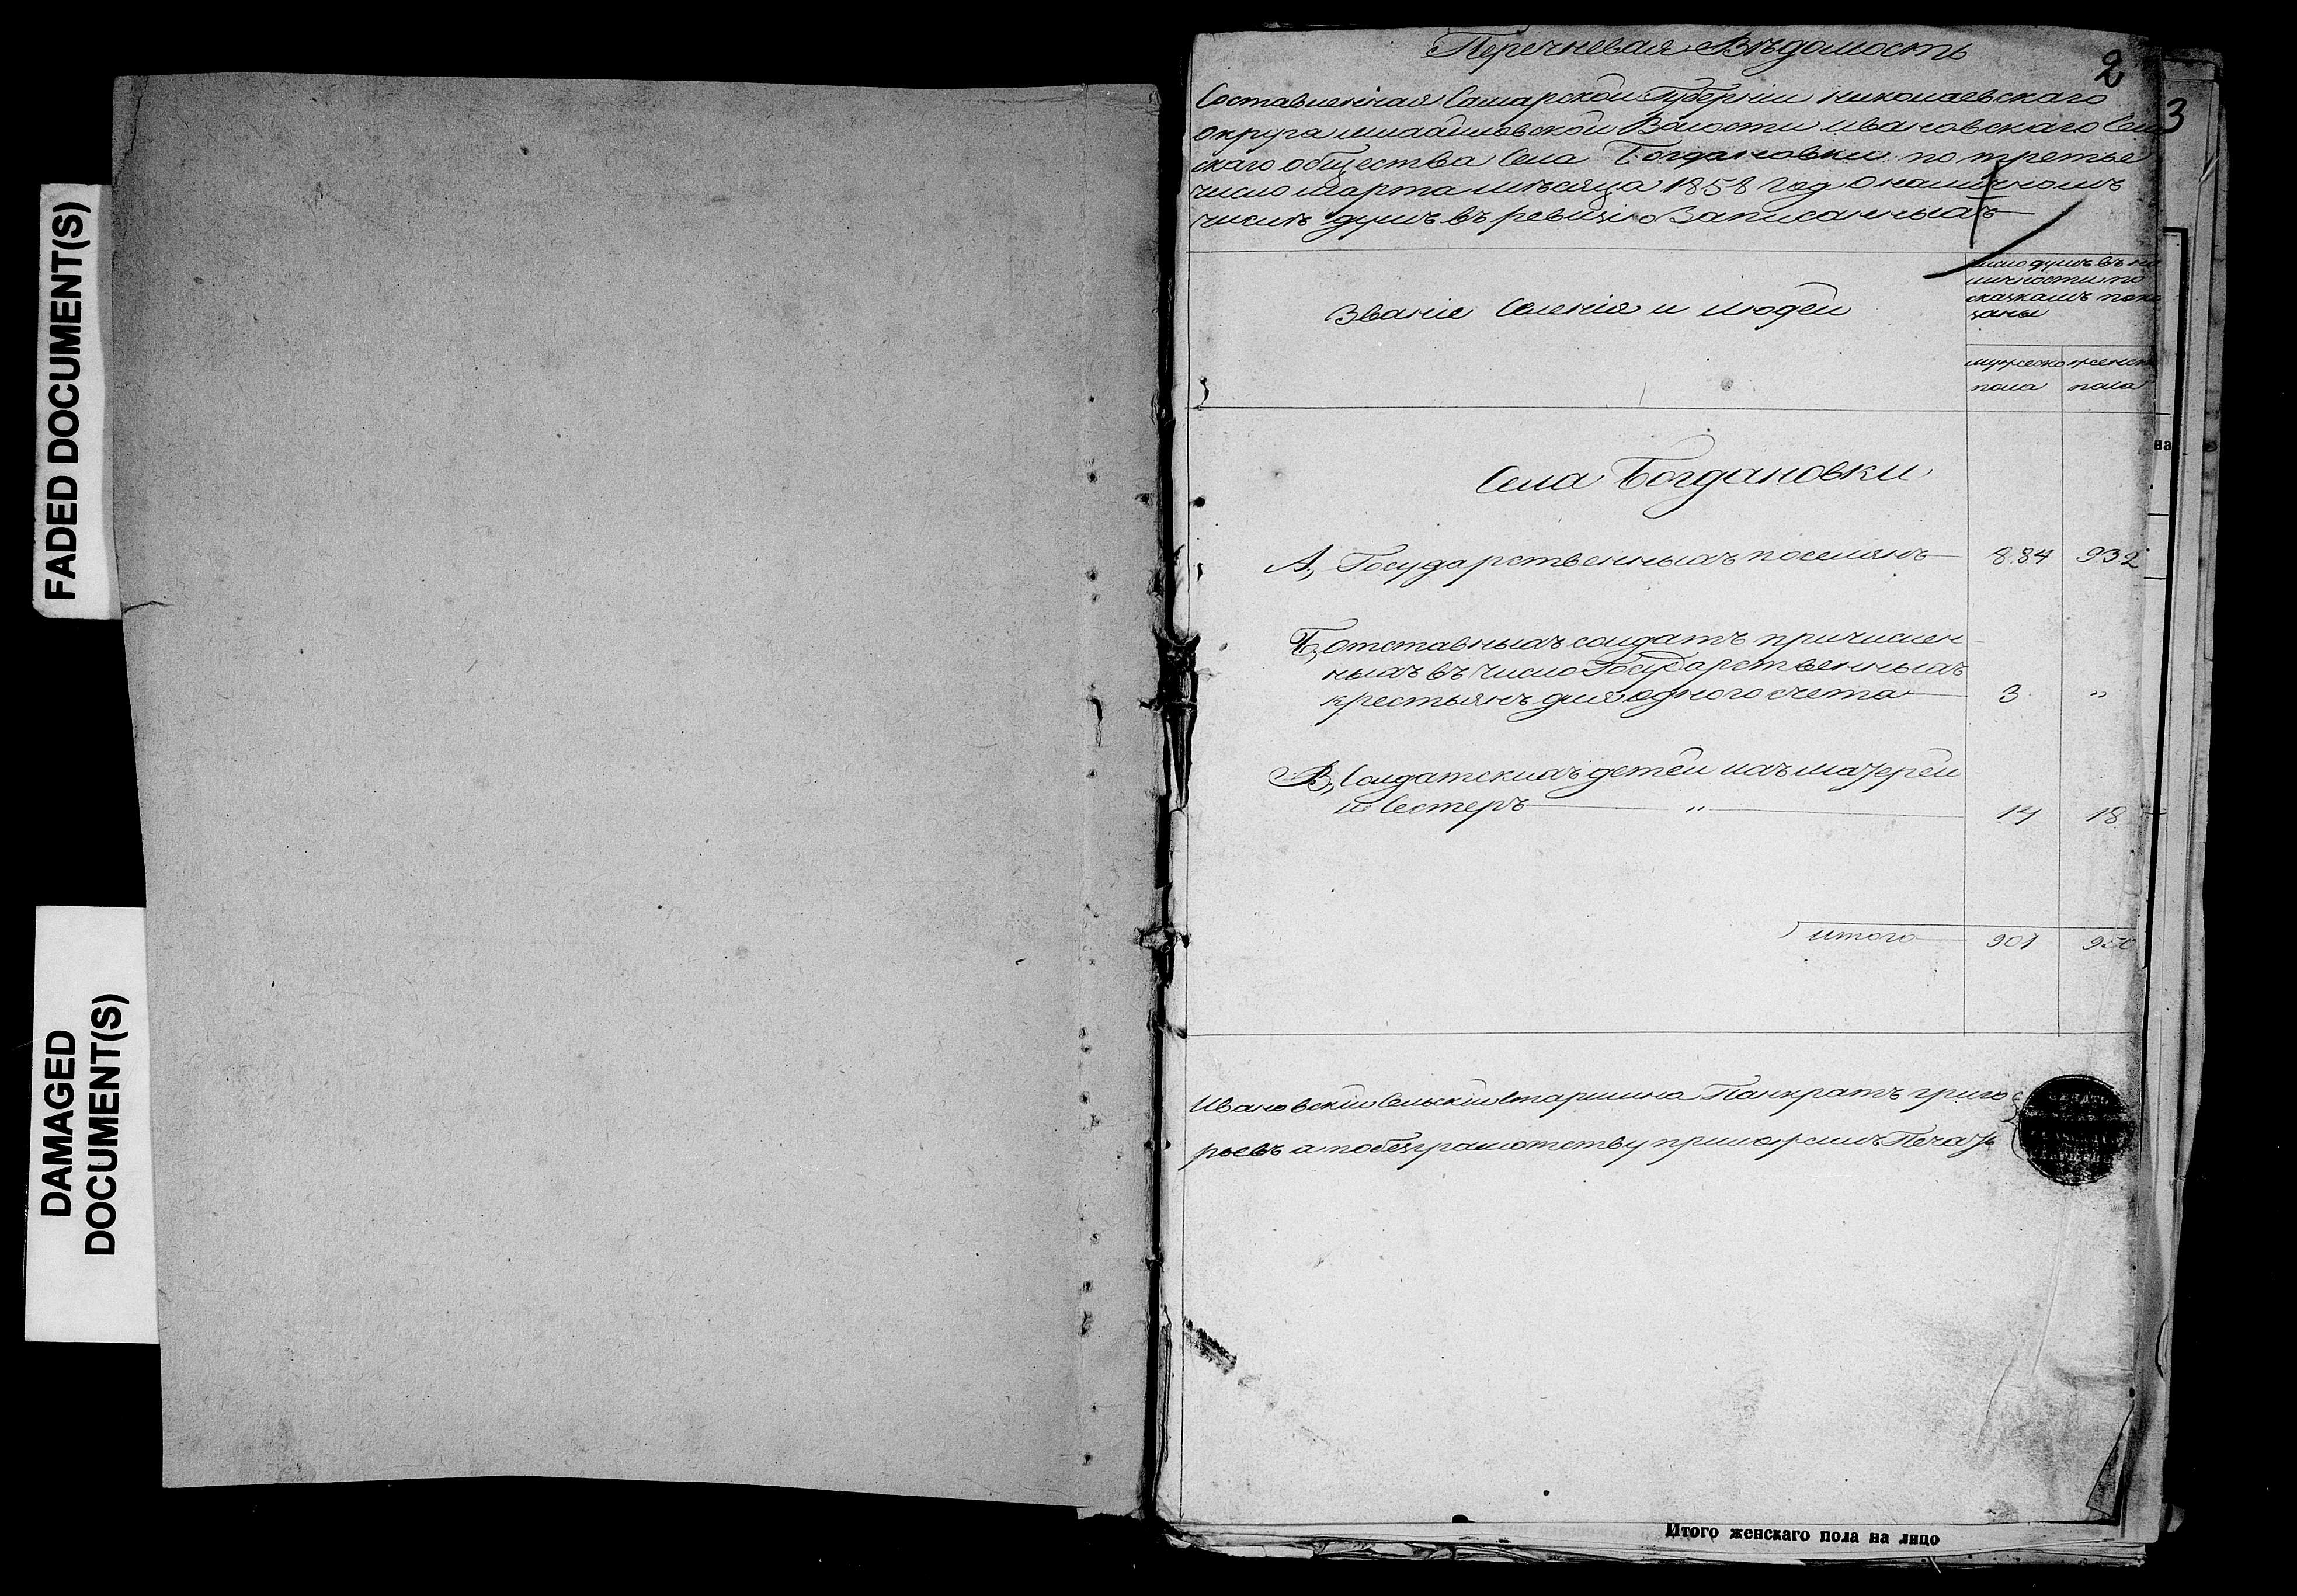 FADED DOCUMENT(S)
DAMAGED
DOCUMENT(S)
Перечневая Вѣдомость
2
3
Составленная Самарской Губерніи николаевскаго
округа Волости ивановскаго Сель
скаго общества Села Богдановки по третье
число марта мѣсяца 1858 год О наличномъ
числѣ душъ въ ревизію Записанныхъ
Званіе Селенія и людей
число душъ въ на
личности по
сказкамъ пока
заны
мужеско женск
пола пола
на
Села Богдановки
А, Государственныхъ поселянъ 884 932
Б, отставныхъ солдатъ причислен
ныхъ въ число Государственныхъ
крестьянъ для одного счета 3 „
В, Солдатскихъ детей ихъ матерей
и Сестеръ „ 14 18
итого 901 950
Ивановскій Сельскій старшина Панкратъ григо
рьевъ а по безграмотству приложилъ Печать
Итого женскаго пола на лицо